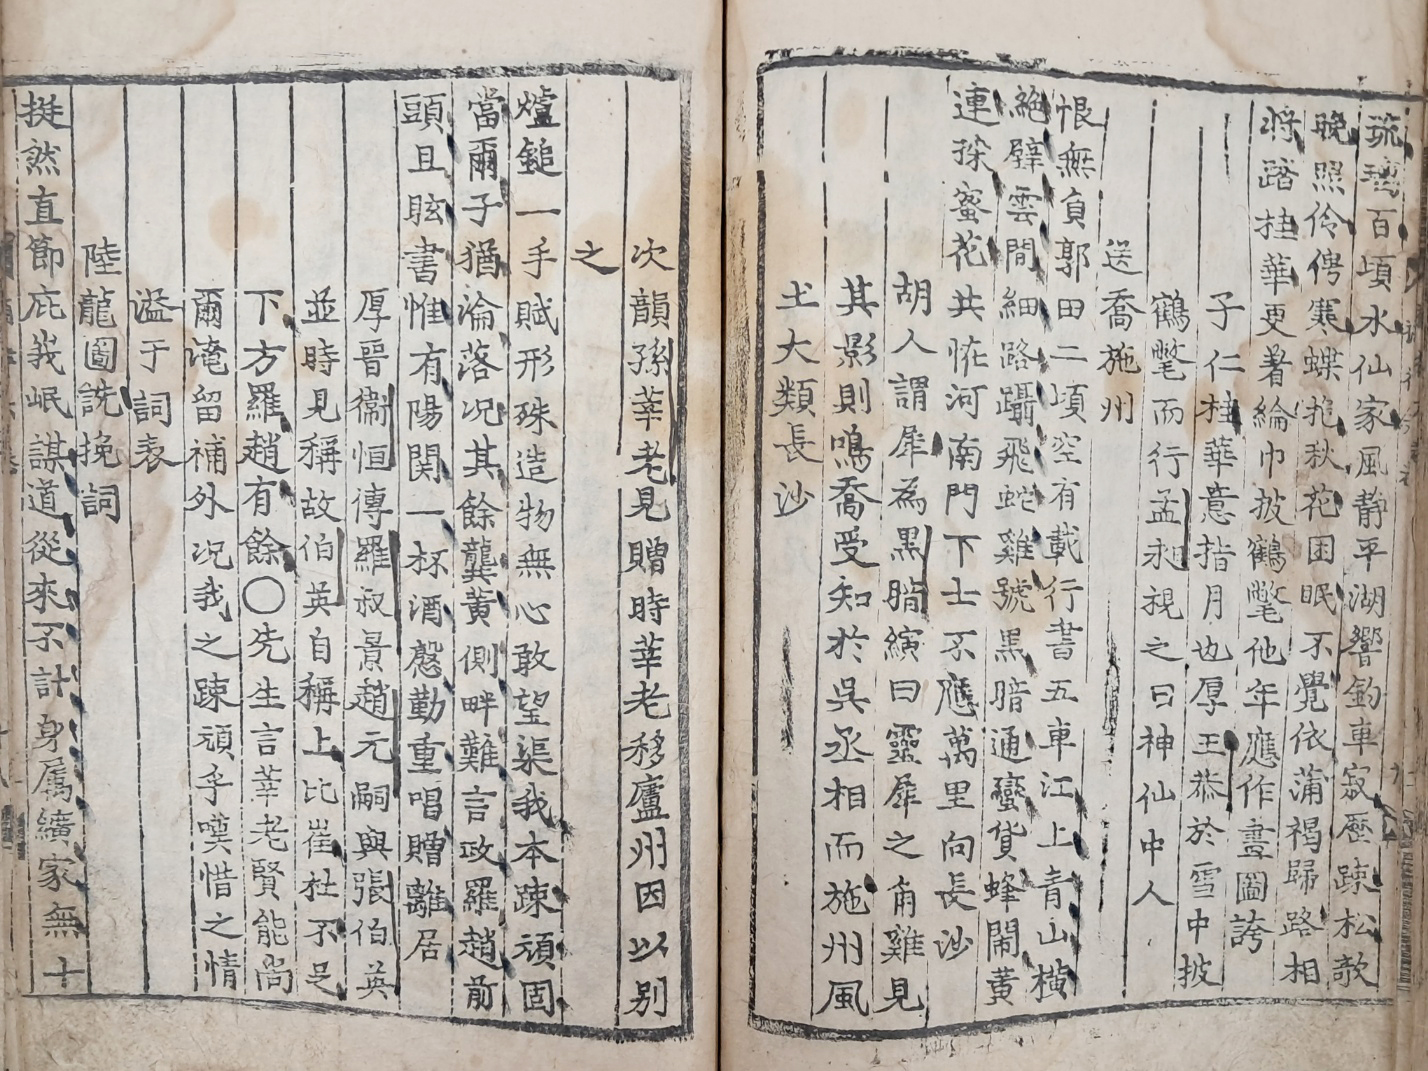 琉璃百頃水仙家風静平湖響釣車寂歷踈松欹
晚照伶俜寒蝶抱秋花困眠不覺依蒲褐歸路相
將踏桂華更著綸巾披鶴氅他年應作畫圖誇
子仁桂華意指月也厚王恭於雪中披
鶴氅而行孟昶視之曰神仙中人
送喬施州
恨無負郭田二頃空有載行書五車江上青山橫
絶壁雲間細路躡飛蛇雞號黑暗通蠻貨蜂閙黃
連採蜜花共恠河南門下士不應萬里向長沙
胡人謂犀為黑暗演曰靈犀之角雞見
其影則鳴喬受知於吳丞相而施州風
土大類長沙
次韻孫莘老見贈時莘老移廬州因以别
之
爐鎚一手賦形殊造物無心敢望渠我本踈頑固
當爾子猶淪落况其餘龔黃側畔難言政羅趙前
頭且眩書惟有陽関一杯酒慇勤重唱贈離居
厚晉衞恒傳羅叔景趙元嗣與張伯英
並時見稱故伯英自稱上比崔杜不足
下方羅趙有餘○先生言莘老賢能尚
爾淹留補外况我之踈頑乎嘆惜之情
溢于詞表
陸龍圖詵挽詞
挺然直節庇我岷謀道從來不計身属纊家無十